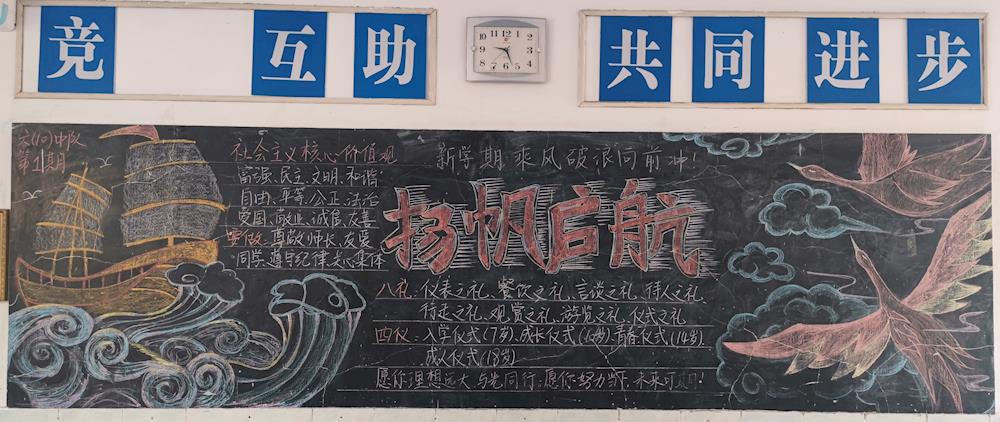 竞 互助
共同进步
六(1)中队
第1期
社会主义核心价值观
富强、民主、文明、和谐
自由、平等、公正、法治
爱国、敬业、诚信、友善
要做:尊敬师长、友爱
同学、遵守纪律、关心集体
新学期乘风破浪向前冲!
扬帆启航
八礼:仪表之礼、餐饮之礼、言谈之礼、待人之礼、
行走之礼、观赏之礼、游览之礼、仪式之礼
四仪:入学仪式(7岁)、成长仪式(10岁)、青春仪式(14岁)、
成人仪式(18岁)
愿你理想远大,与光同行;愿你努力当下,未来可期!
12 1 2 3 4 5 6 7 8 9 10 11